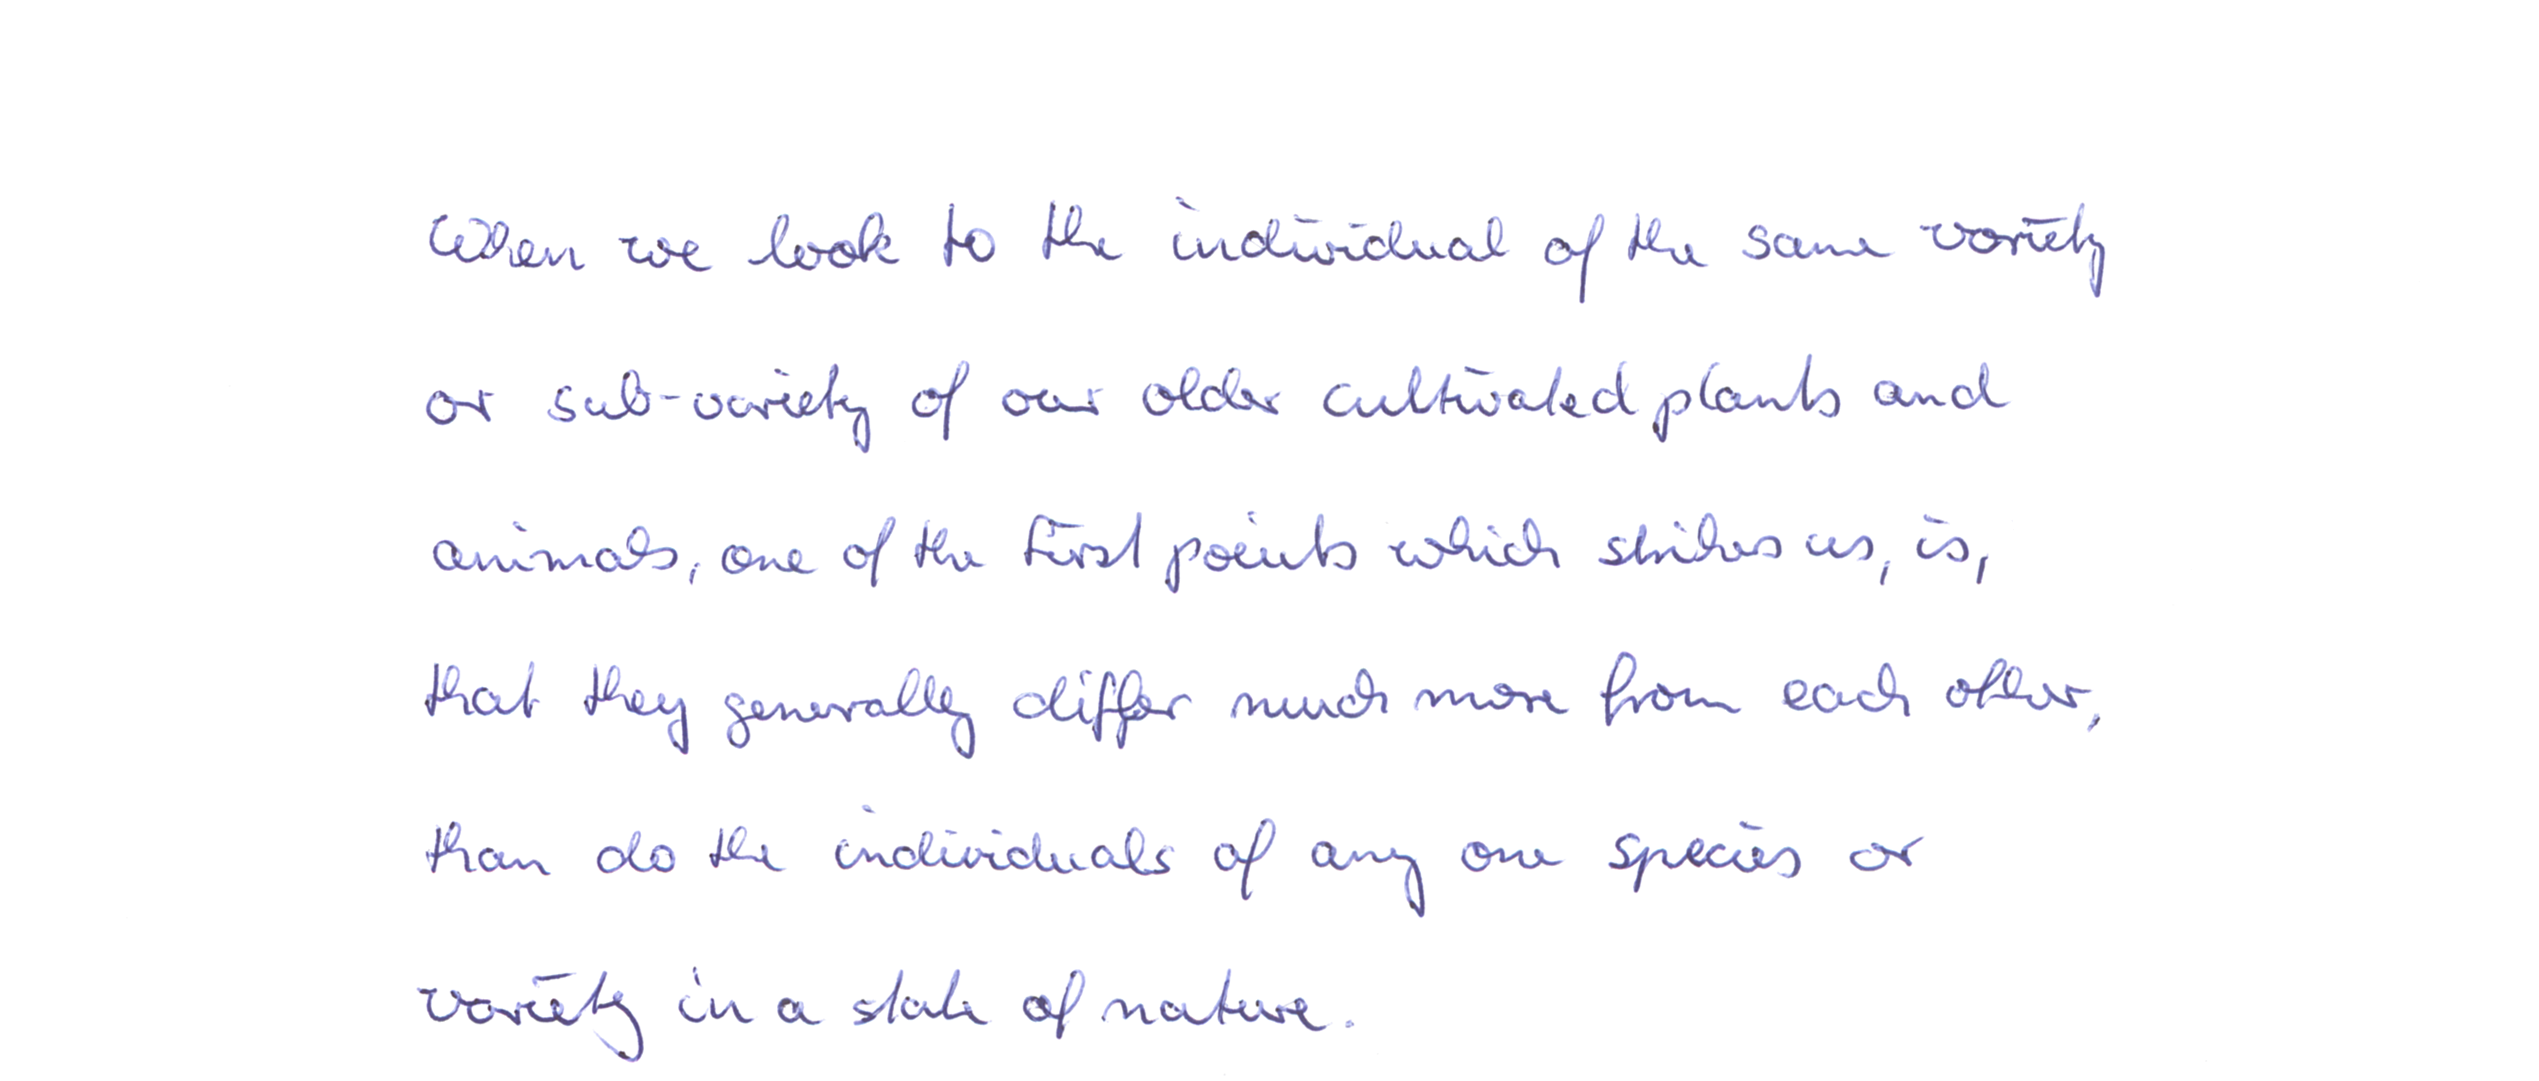 When we look to the individual of the same variety
or sub-variety of our older cultivated plants and
animals, one of the first points which strikes us, is,
that they generally differ much more from each other,
than do the individuals of any one species or
variety in a state of nature.